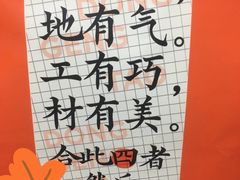 地有气。
工有巧，
材有美。
合此四者